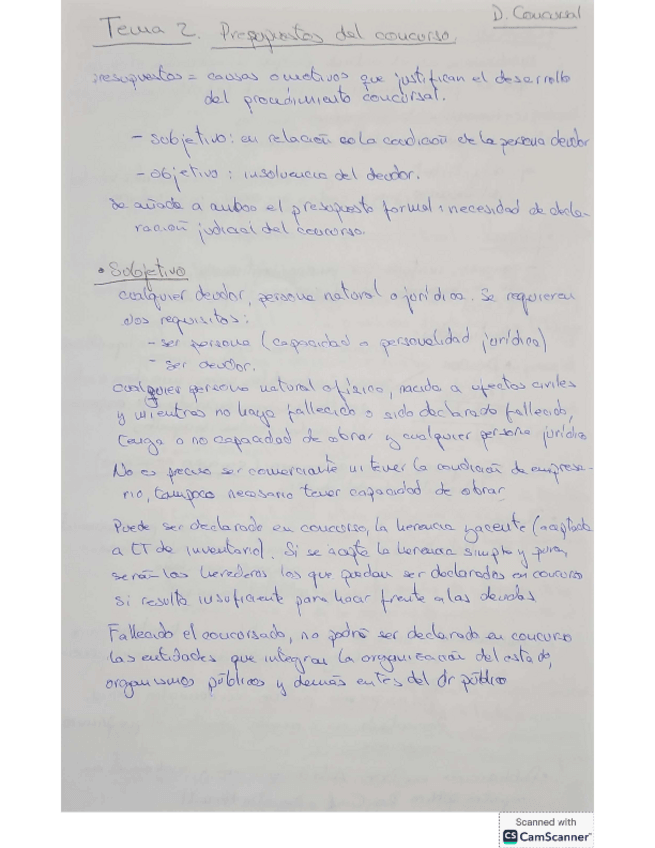 D. Concursal
Tema 2. Presupuestos del concurso.
presupuestos = causas o motivos que justifican el desarrollo
del procedimiento concursal.
- Subjetivo: en relación co la condición de la persona deudor
- objetivo: insolvencia del deudor.
Se añade a ambos el presupuesto formal: necesidad de decla-
ración judicial del concurso.
• Subjetivo
cualquier deudor, persona natural o jurídica. Se requieren
dos requisitos:
- ser persona (capacidad o personalidad jurídica)
- ser deudor.
cualquier persona natural o física, nacida a efectos civiles
y mientras no haya fallecido o sido declarado fallecido,
tenga o no capacidad de obrar y cualquier persona jurídica
No es preciso ser comerciante ni tener la condición de empresa-
rio, tampoco necesario tener capacidad de obrar.
Puede ser declarado en concurso, la herencia yacente (aceptada
a CT de inventario). Si se acepta la herencia simple y pura,
serán los herederos los que puedan ser declarados en concurso
si resulta insuficiente para hacer frente a las deudas
Fallecido el concursado, no podrá ser declarado en concurso
las entidades que integran la organización del estado,
organismos públicos y demás entes del dr público
Scanned with
CS CamScanner